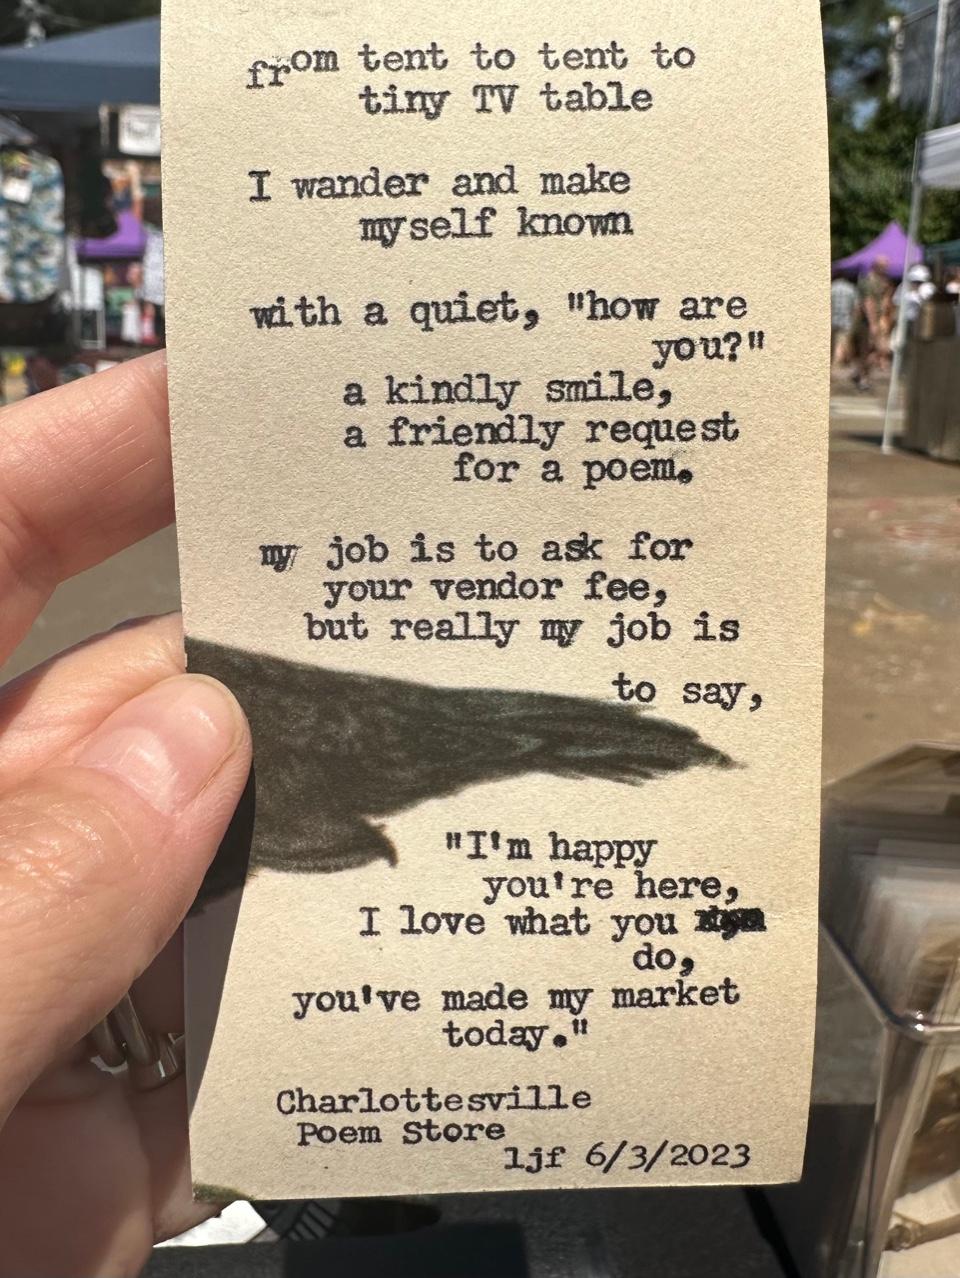 from tent to tent to
tiny TV table
I wander and make
myself known
with a quiet, "how are
you?"
a kindly smile,
a friendly request
for a poem.
my job is to ask for
your vendor fee,
but really my job is
to say,
"I'm happy
you're here,
I love what you
do,
you've made my market
today."
Charlottesville
Poem Store
ljf 6/3/2023